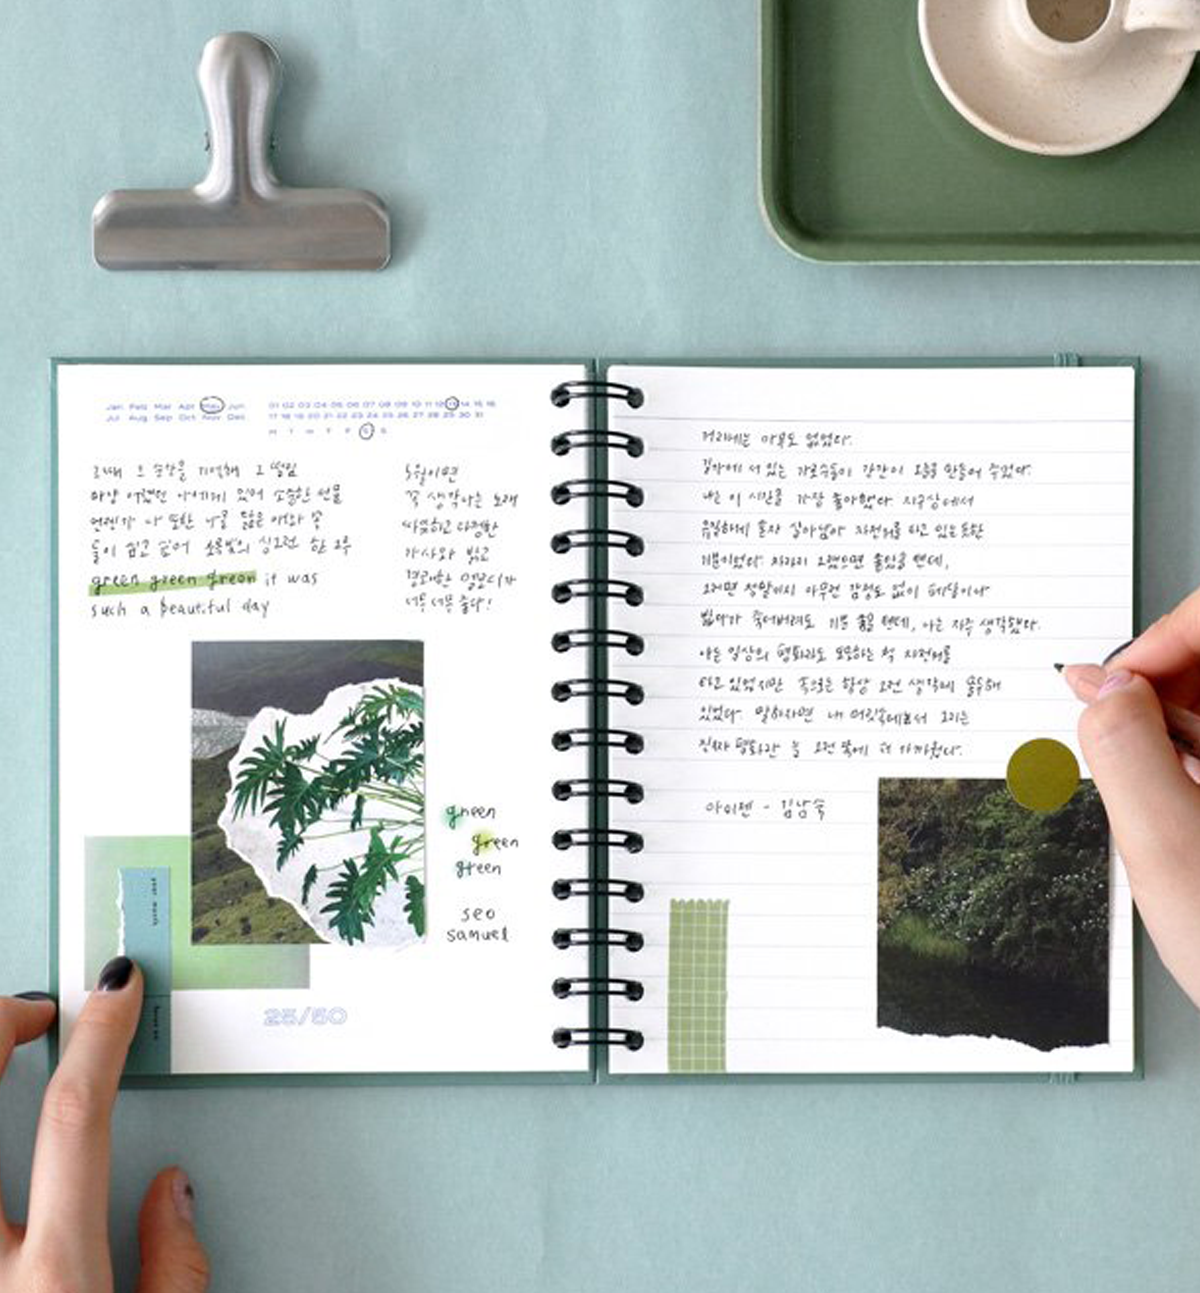 Jan Feb Mar Apr May Jun
Jul Aug Sep Oct Nov Dec
01 02 03 04 05 06 07 08 09 10 11 12 13 14 15 16
17 18 19 20 21 22 23 24 25 26 27 28 29 30 31
M T W T F S S
그때 그 순간을 기억해 그 떨림
마냥 어렸던 아이에게 있어 소중한 선물
언젠가 나 또한 나를 닮은 아이와 꼭
들이 쉬고 싶어 초록빛의 싱그런 한 모금
green green green it was
such a beautiful day
5월이면
꼭 생각나는 노래
따뜻하고 다정한
가사와 밝고
경쾌한 멜로디가
너무 너무 좋다!
green
green
green
seo
samuel
your month
25/50
거리에는 아무도 없었다.
길가에 서 있는 가로수들이 간간이 그늘을 만들어 주었다.
나는 이 시간을 가장 좋아했다. 지구상에서
유일하게 혼자 살아남아 자전거를 타고 있는 듯한
기분이었다. 차라리 그랬으면 좋았을 텐데,
그러면 정말이지 아무런 감정도 없이 페달이나
밟다가 죽어버려도 기쁠 텐데, 나는 자주 생각했다.
나는 일상의 평화라도 모르는 척 자전거를
타고 있었지만 속으로는 항상 그런 생각에 몰두해
있었다. 말하자면 내 머릿속에서 그리는
진짜 평화란 늘 그런 쪽에 더 가까웠다.
아이젠 - 김남숙